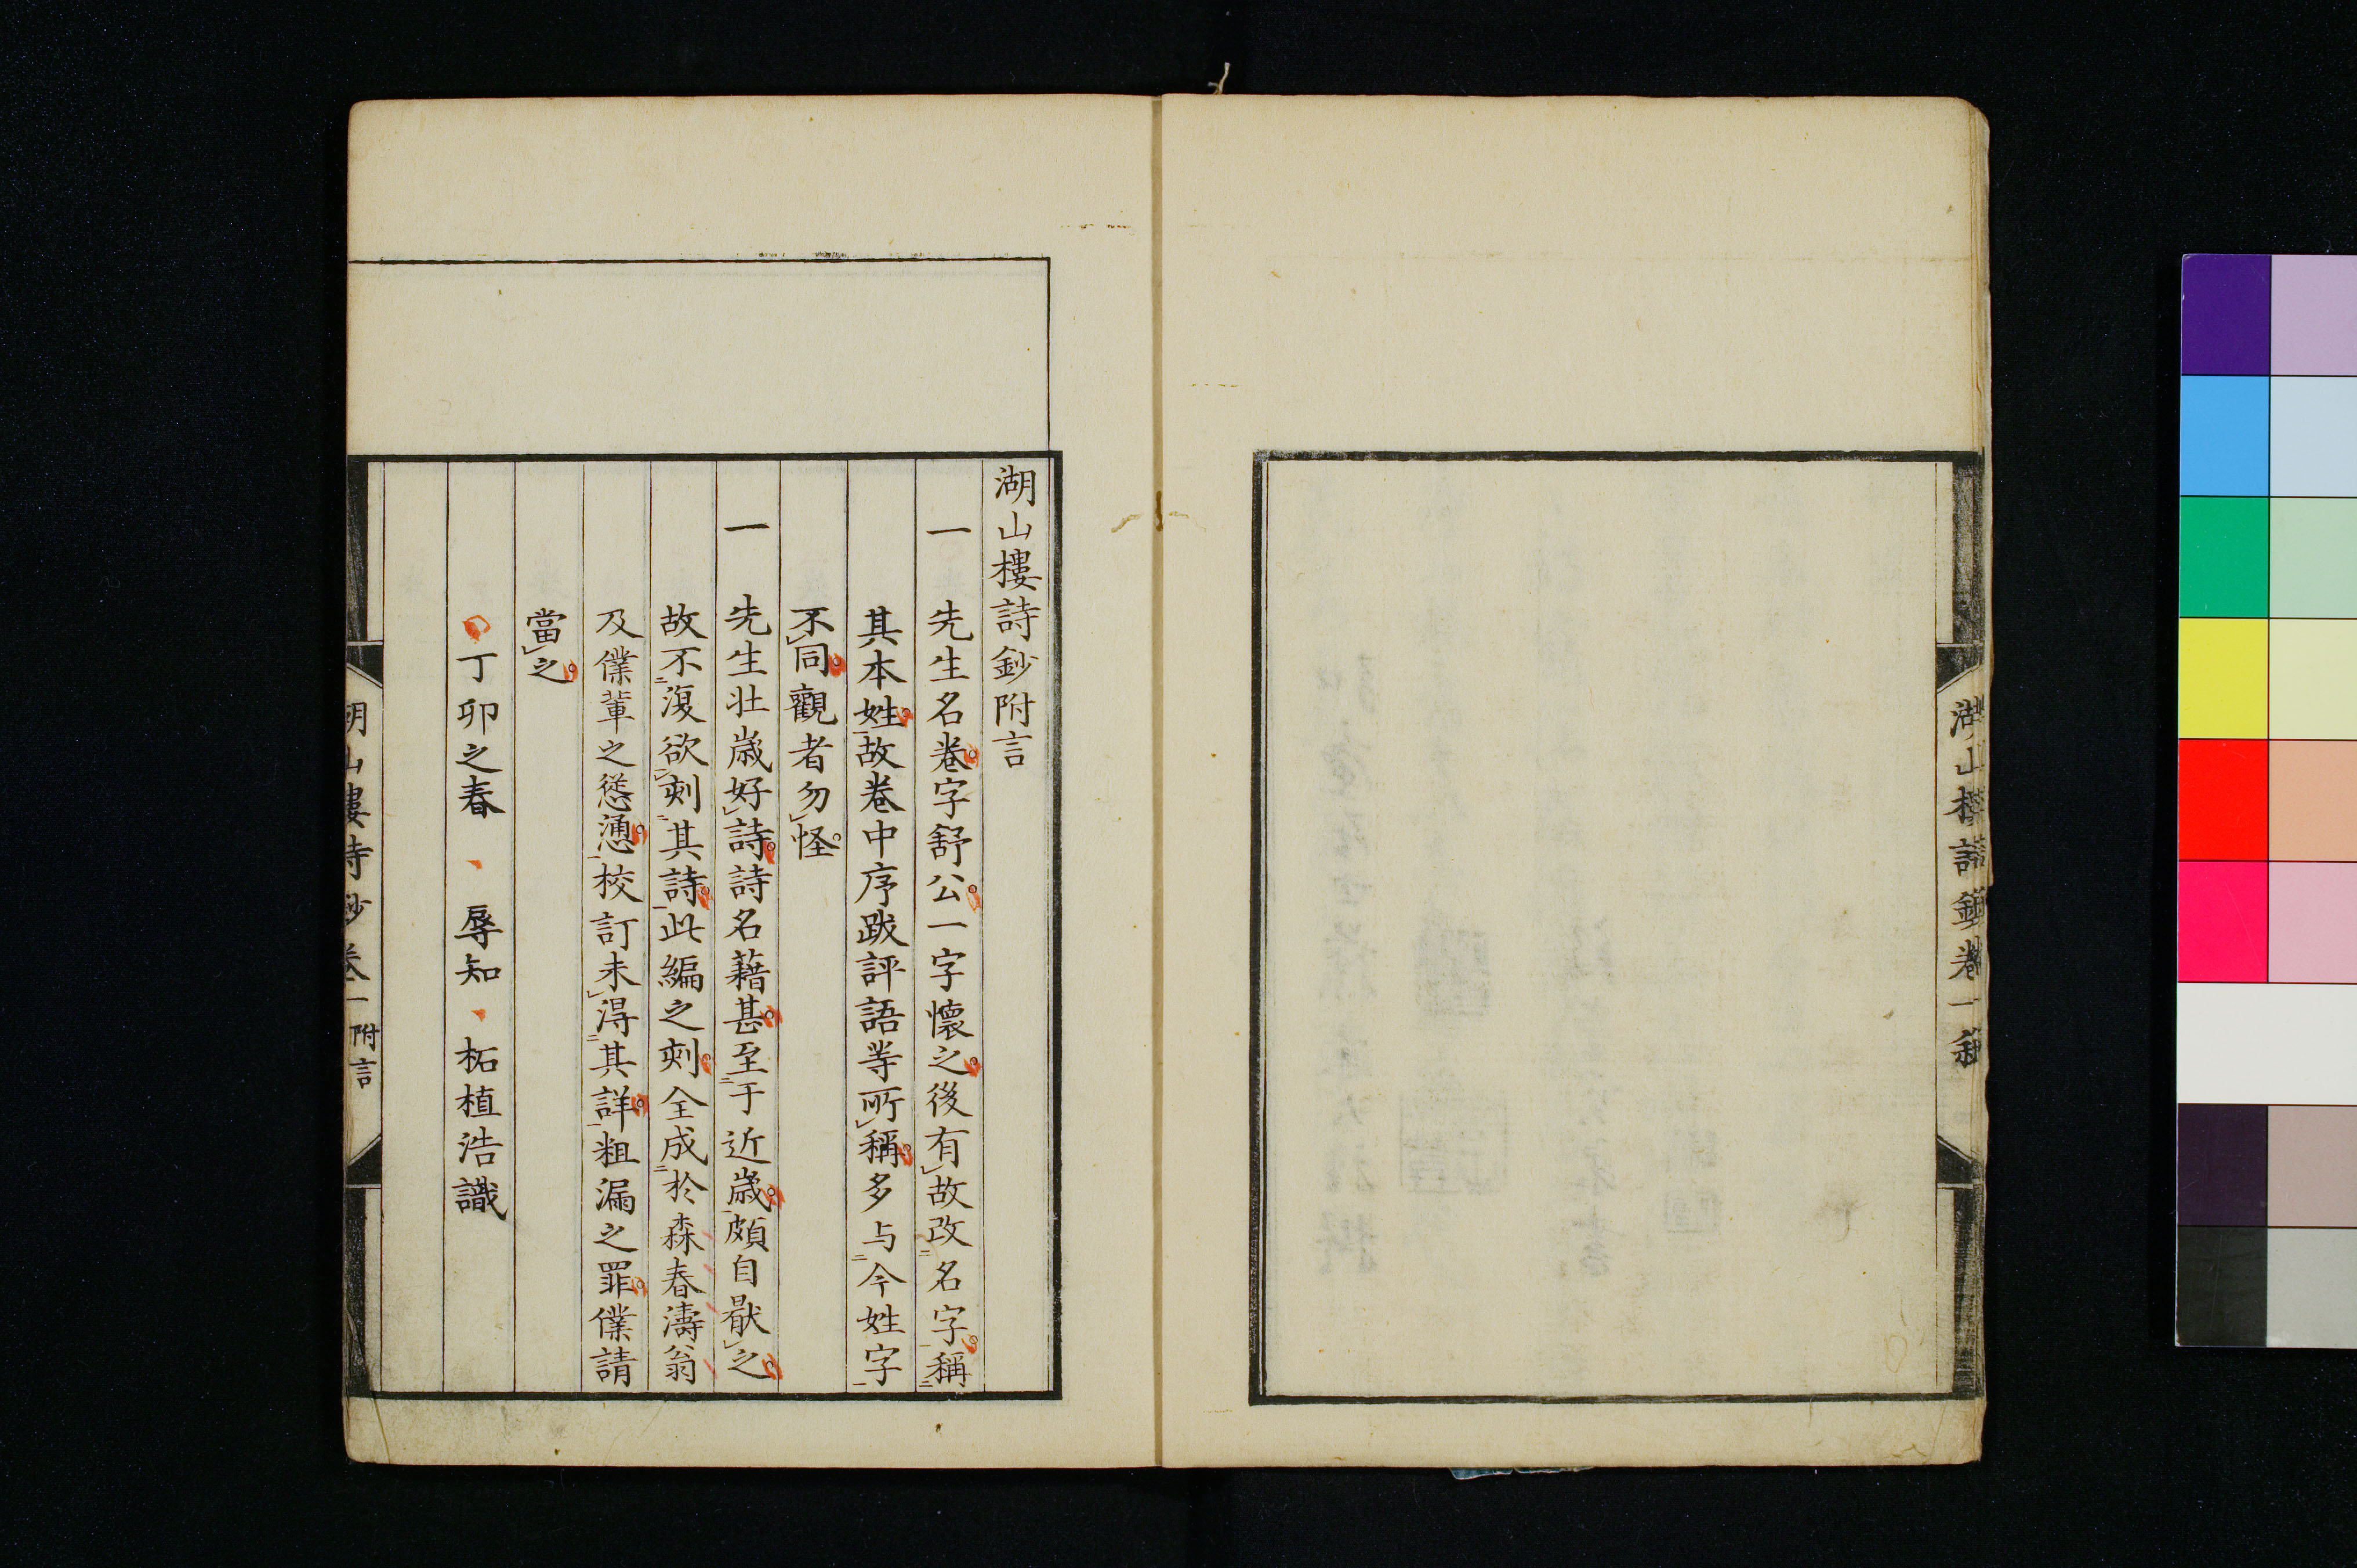 湖山樓詩鈔卷一叙
湖山樓詩鈔附言
一 先生名卷字舒公一字懷之後有故改名字稱
其本姓故卷中序跋評語等所稱多与今姓字
不同觀者勿怪
一 先生壯歲好詩詩名藉甚至于近歲頗自厭之
故不復欲刻其詩此編之刻全成於森春濤翁
及僕輩之慫慂校訂未得其詳粗漏之罪僕請
當之
丁卯之春 辱知 柘植浩識
湖山樓詩鈔卷一 附言